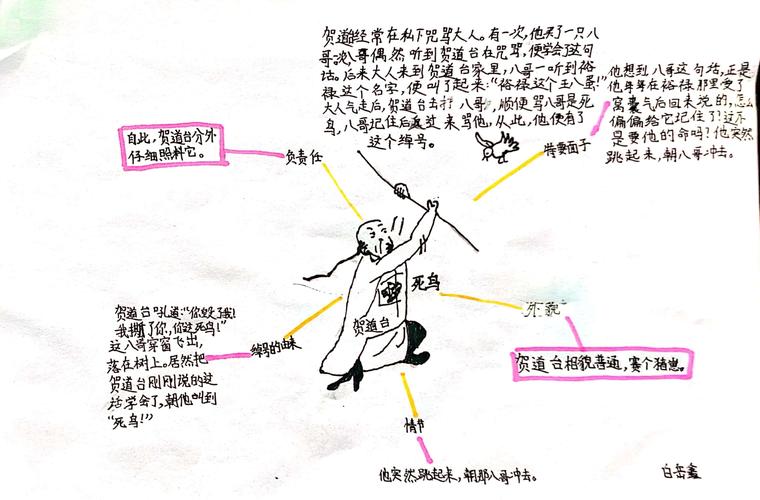 贺道台经常在私下咒骂大人。有一次，他买了一只八
哥。这八哥偶然听到贺道台在咒骂，便学会了这句
话。后来大人来到贺道台家里，八哥一听到裕
禄这个名字，便叫了起来："裕禄这个王八蛋！"
大人气走后，贺道台去打八哥，顺便骂八哥是死
鸟，八哥记住后返过来骂他，从此，他便有了
这个绰号。
他想到八哥这句话，正是
他每每在裕禄那里受了
窝囊气后回来说的，怎么
偏偏给它记住了？这不
是要他的命吗？他突然
跳起来，朝八哥冲去。
爱面子
自此，贺道台分外
仔细照料它。
负责任
死鸟
贺道台
贺道台吼道："你毁了我！
我撕了你，你这死鸟！"
这八哥穿窗飞出，
落在树上。居然把
贺道台刚刚说的这
话学会了，朝他叫到
"死鸟！"
绰号的由来
贺道台相貌普通，赛个猪崽。
情节
他突然跳起来，朝那八哥冲去。
白岳鑫